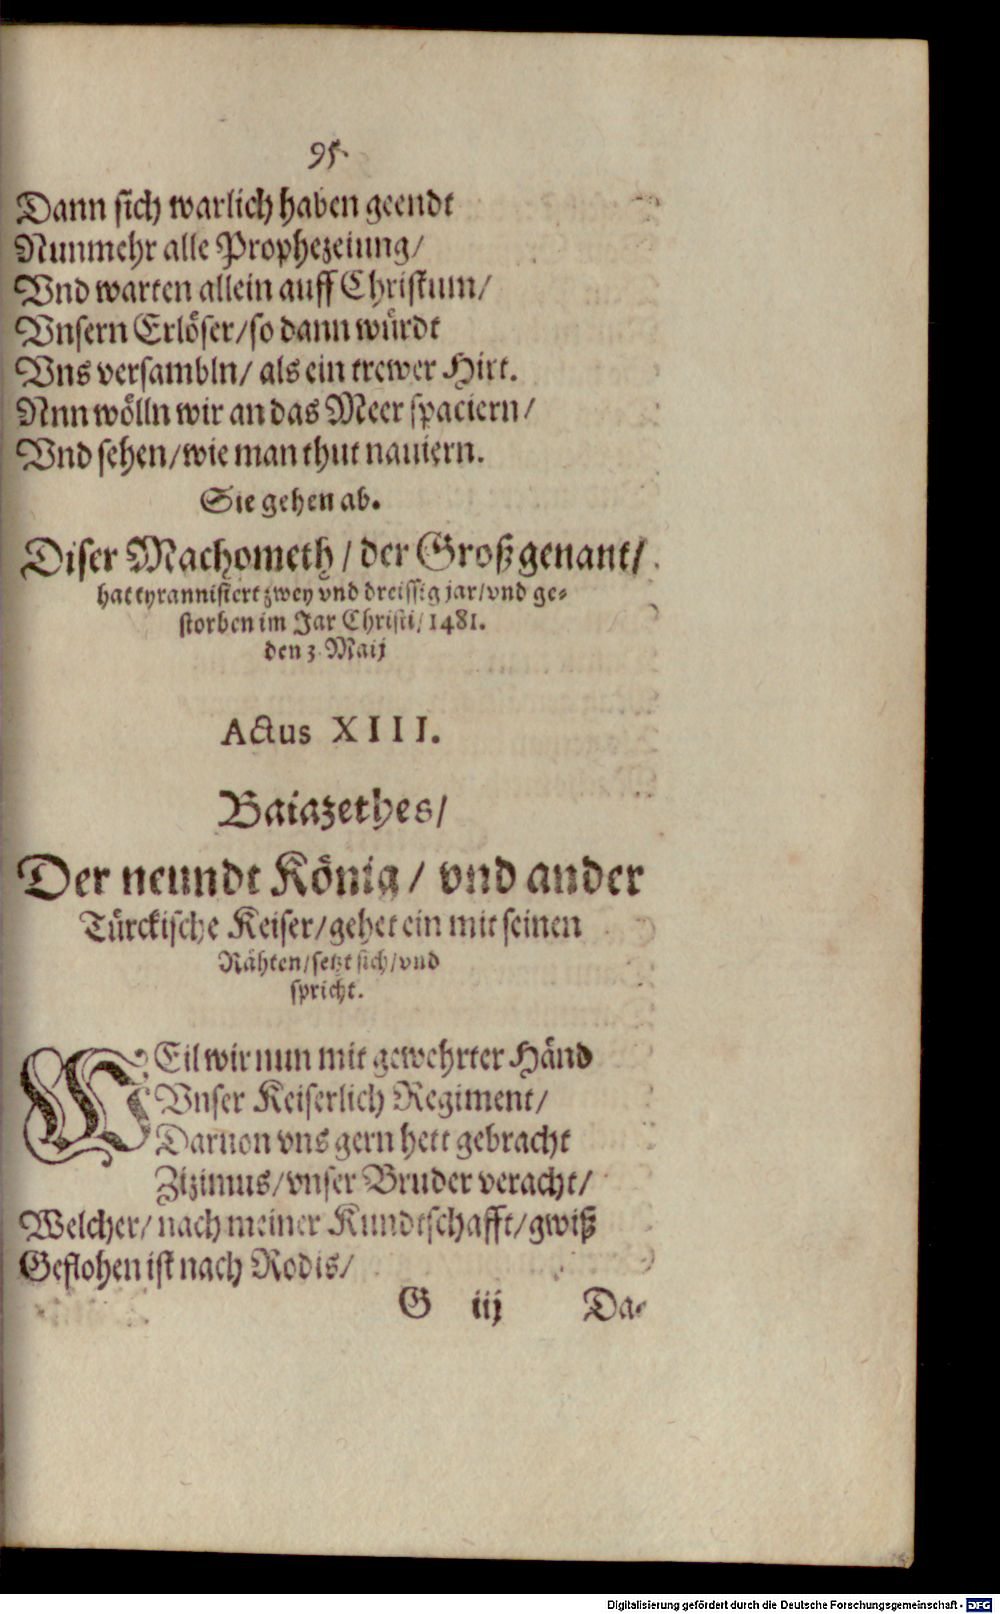 95.
Dann sich warlich haben geendt
Nunmehr alle Prophezeiung/
Vnd warten allein auff Christum/
Vnsern Erlöser/so dann würdt
Vns versambln/ als ein trewer Hirt.
Nnn wölln wir an das Meer spaciern/
Vnd sehen/wie man thut nauiern.
Sie gehen ab.
Diser Machometh/der Groß genant/
hat tyrannisiert zwey vnd dreissig jar/vnd ge-
storben im Jar Christi/1481.
den 3. Maij
Actus XIII.
Baiazethes/
Der neundt König/ vnd ander
Türckische Keiser/gehet ein mit seinen
Rähten/setzt sich/vnd
spricht.
WEil wir nun mit gewehrter Händ
Vnser Keiserlich Regiment/
Daruon vns gern hett gebracht
Zizimus/vnser Bruder veracht/
Welcher/nach meiner Kundtschafft/gwiß
Geflohen ist nach Rodis/
G iij Da-
Digitalisierung gefördert durch die Deutsche Forschungsgemeinschaft - DFG